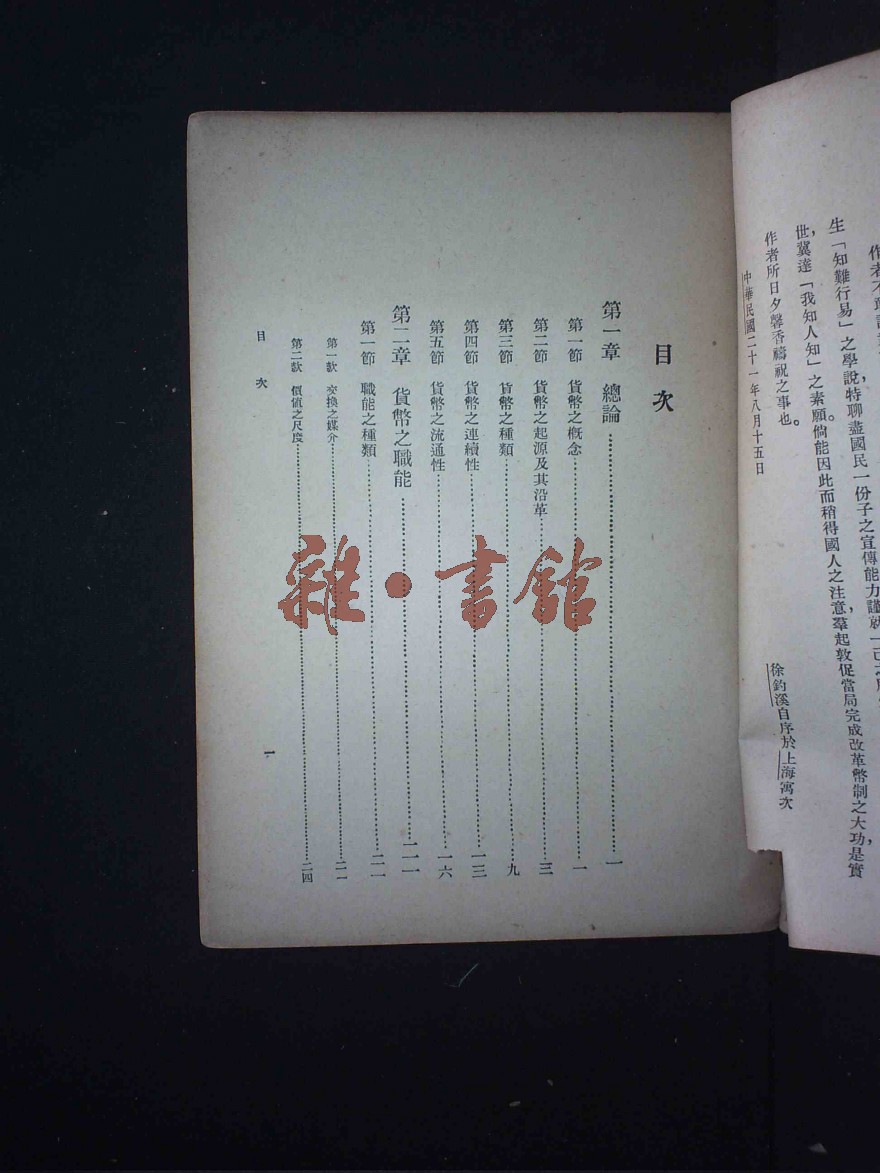 生「知難行易」之學說,特聊盡國民一份子之宣傳能力,謹就一己之
世,冀達「我知人知」之素願。倘能因此而稍得國人之注意,羣起敦促當局完成改革幣制之大功,是實
作者所日夕馨香禱祝之事也。
中華民國二十一年八月十五日
徐鈞溪自序於上海寓次
目次
第一章 總論……一
第一節 貨幣之概念……一
第二節 貨幣之起源及其沿革……三
第三節 貨幣之種類……九
第四節 貨幣之連續性……一三
第五節 貨幣之流通性……一六
第二章 貨幣之職能……二一
第一節 職能之種類……二一
第一款 交換之媒介……二二
第二款 價値之尺度……二四
目次
一
雜·書館